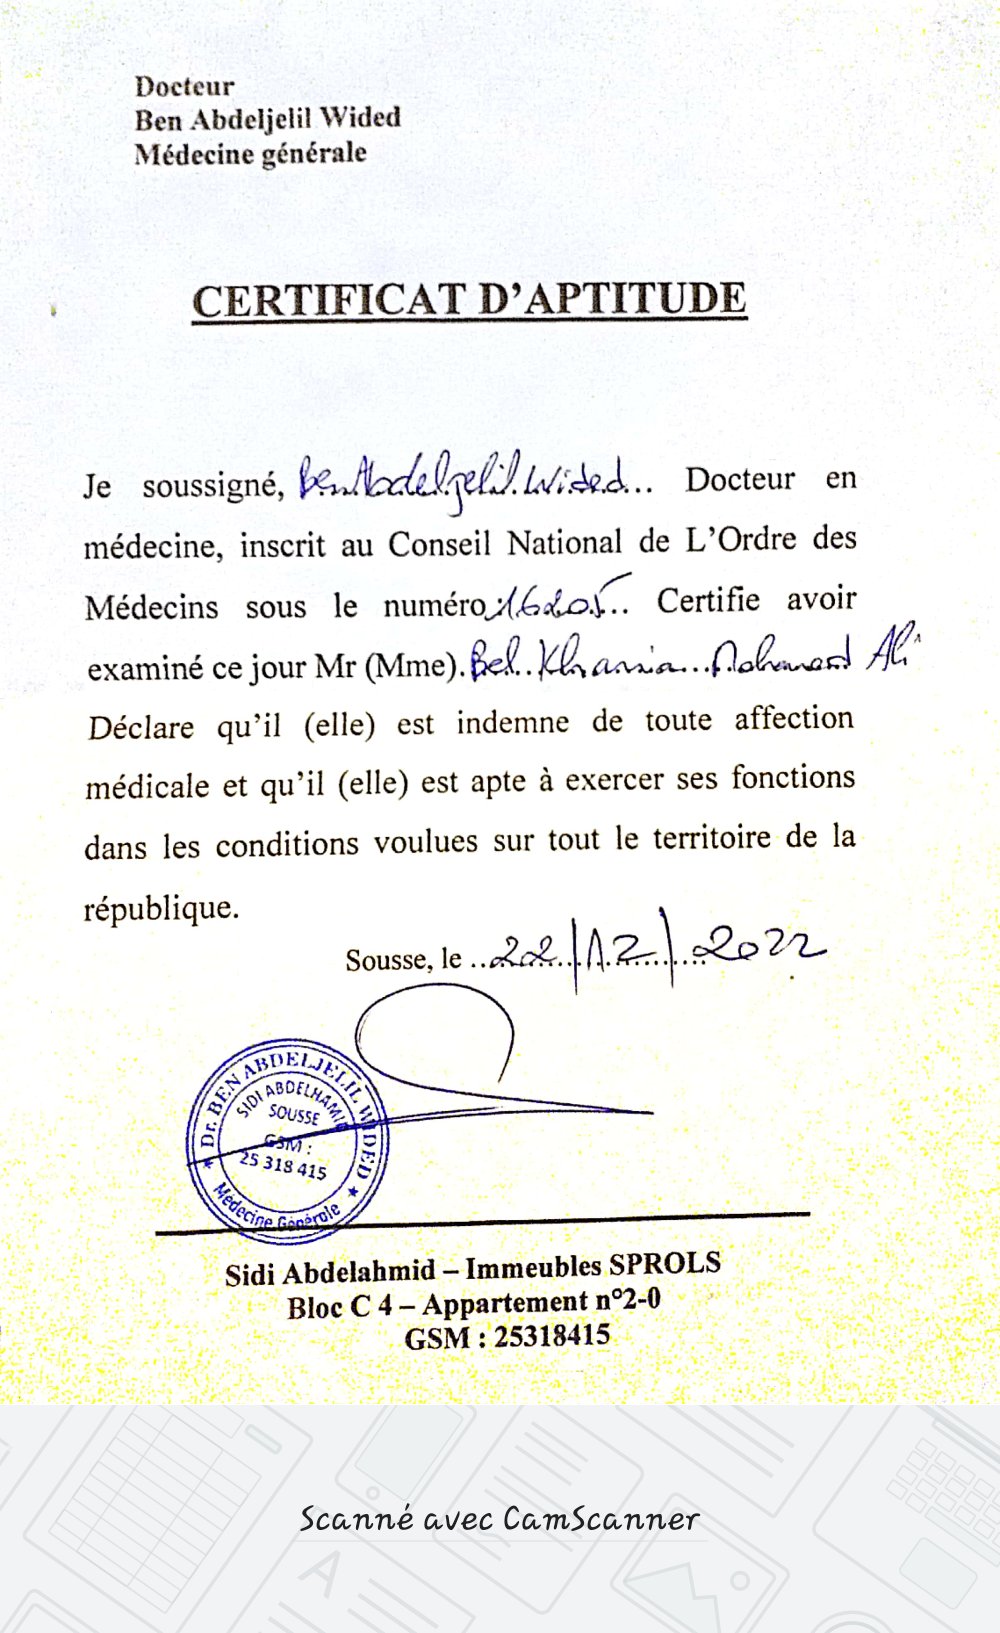 Docteur
Ben Abdeljelil Wided
Médecine générale
CERTIFICAT D'APTITUDE
Je soussigné, Ben Abdeljelil Wided... Docteur en
médecine, inscrit au Conseil National de L'Ordre des
Médecins sous le numéro 16205.. Certifie avoir
examiné ce jour Mr (Mme). Bel Khamia Mohamed Ali
Déclare qu'il (elle) est indemne de toute affection
médicale et qu'il (elle) est apte à exercer ses fonctions
dans les conditions voulues sur tout le territoire de la
république.
Sousse, le ..22/12/2022
Dr. BEN ABDELJELIL WIDED
SIDI ABDELHAMID
SOUSSE
GSM :
25 318 415
Médecine Générale
Sidi Abdelahmid – Immeubles SPROLS
Bloc C 4 – Appartement n°2-0
GSM : 25318415
Scanné avec CamScanner